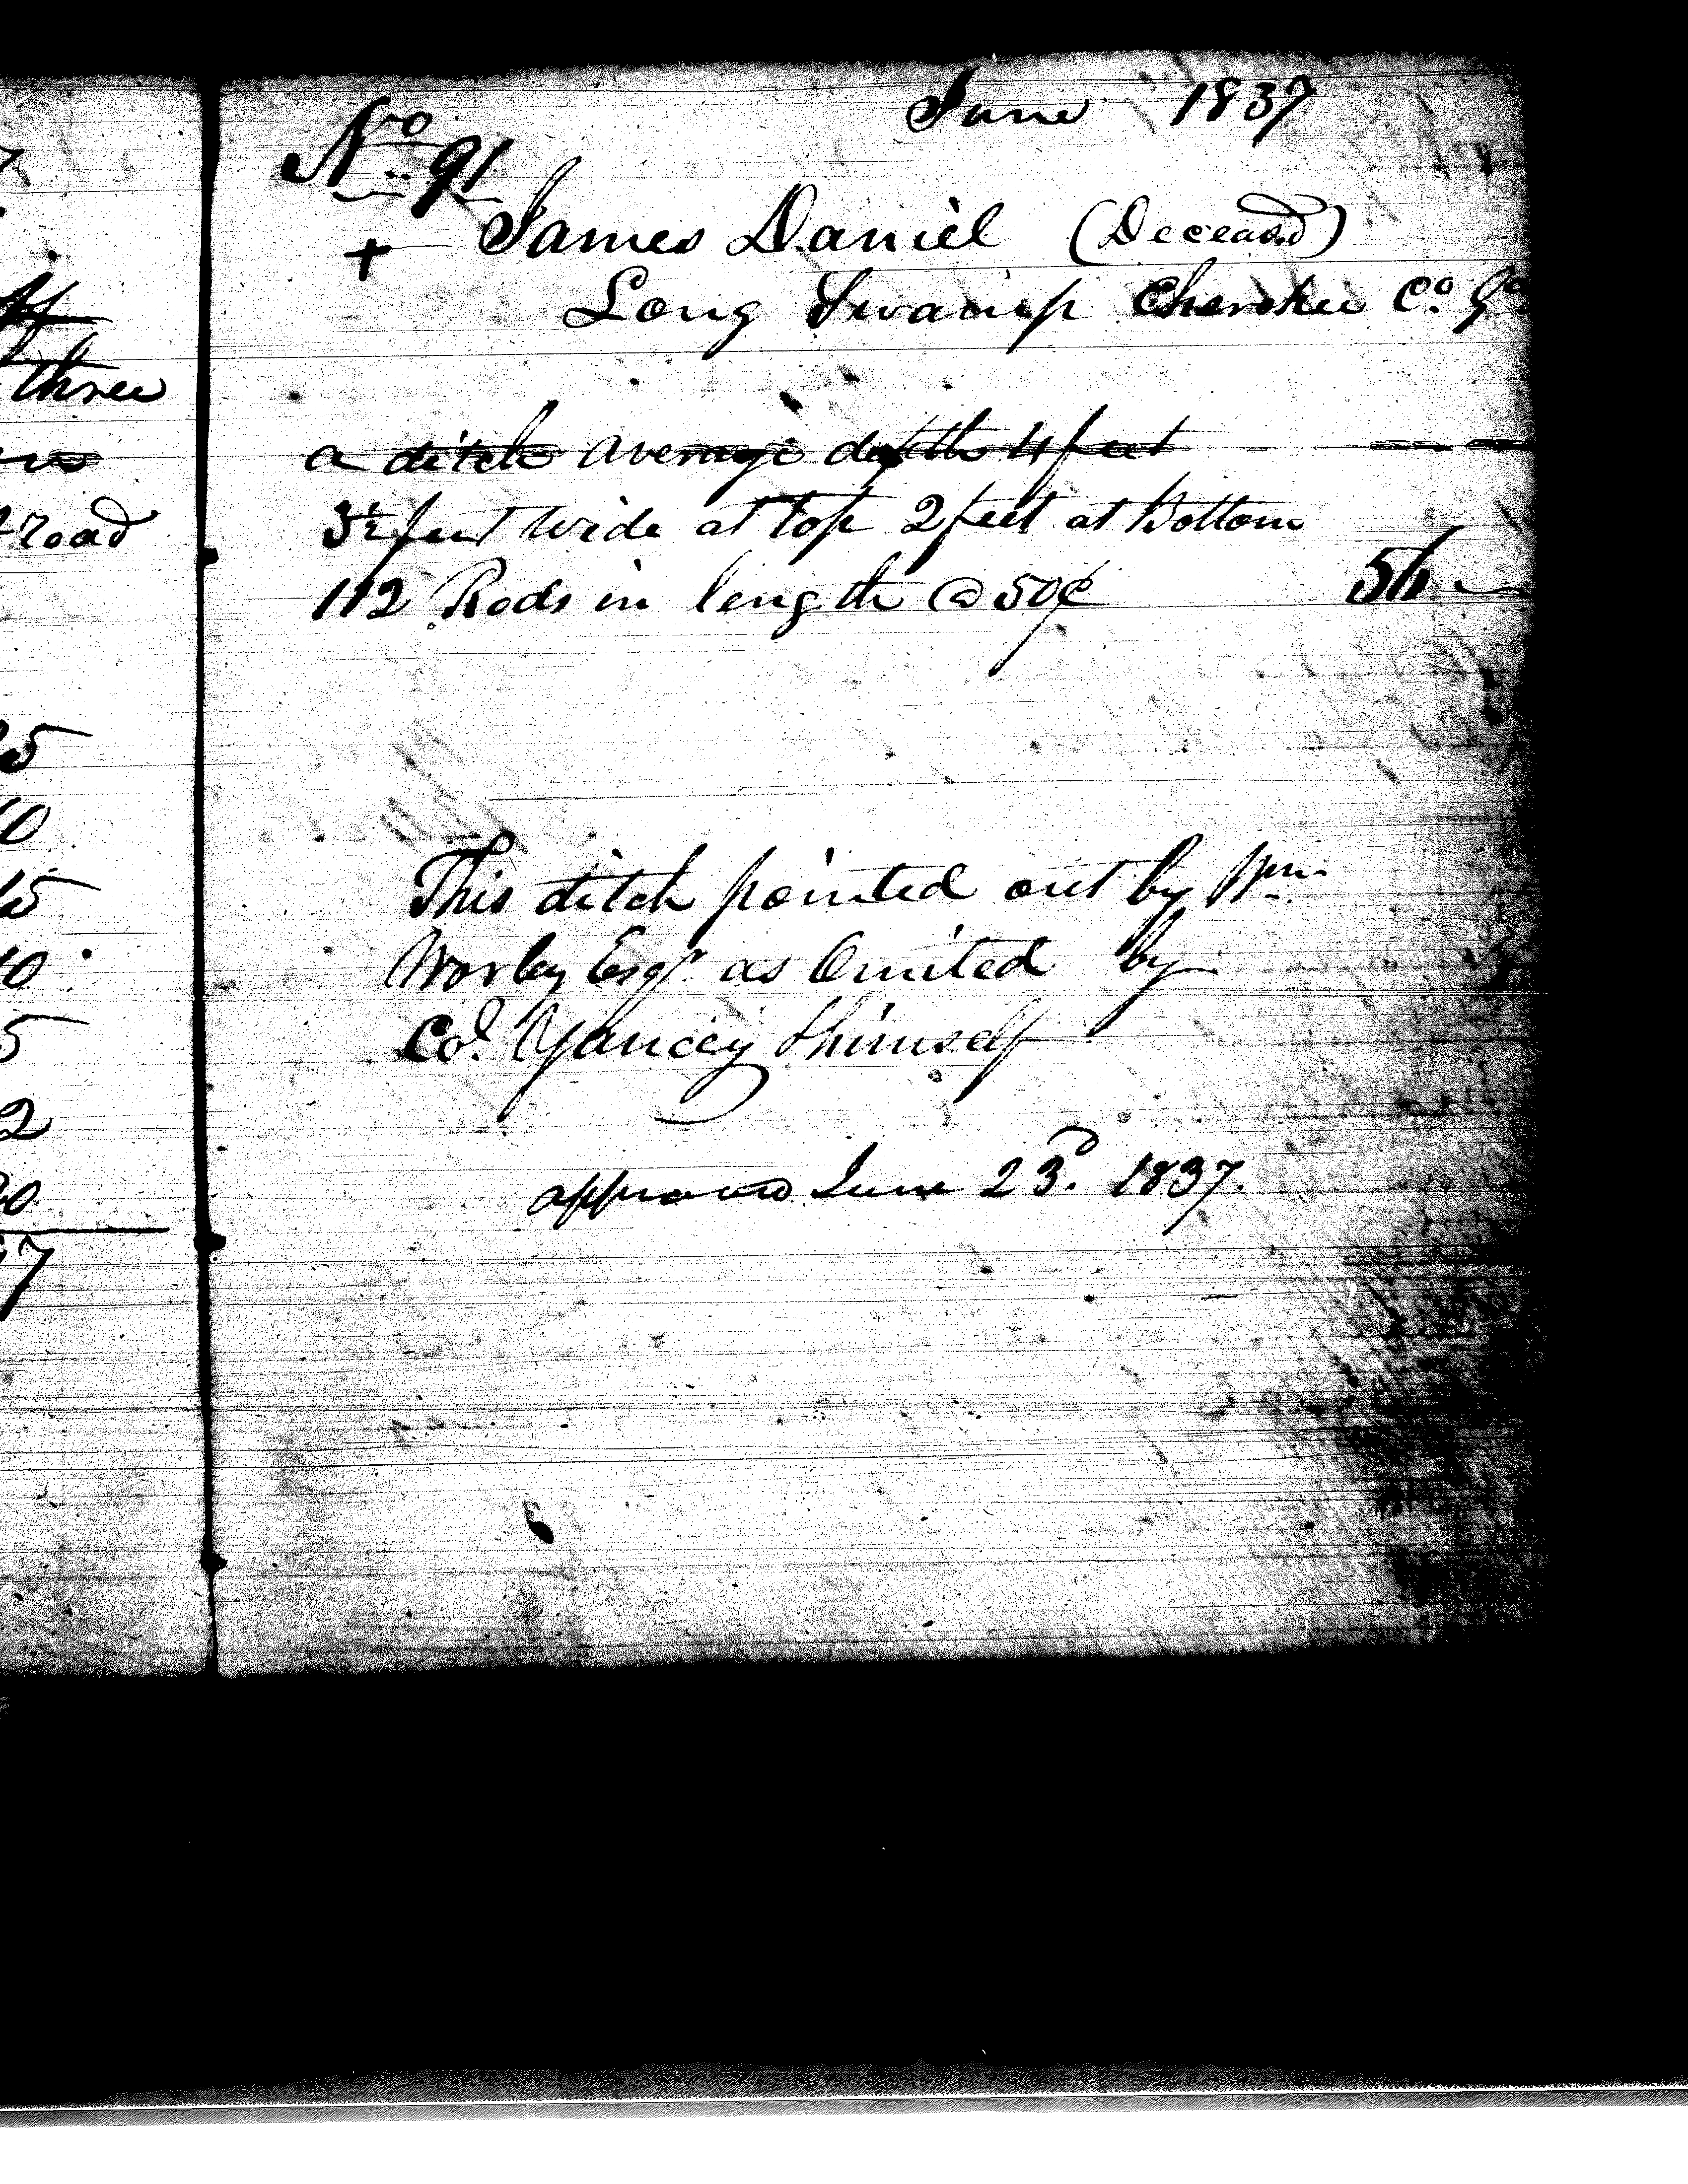 June 1837
No 91
+ James Daniel (Deceasd)
Long Swamp Cherokee Co. Ga
a ditch average depth 4 feet
3½ feet wide at top 2 feet at Bottom
112 Rods in length @ 50¢ 56
This ditch pointed out by Wm.
Worley Esqr. as Omited by
Col. Yancey himself
approved June 23d. 1837.
three
road
25
10
15
10
5
2